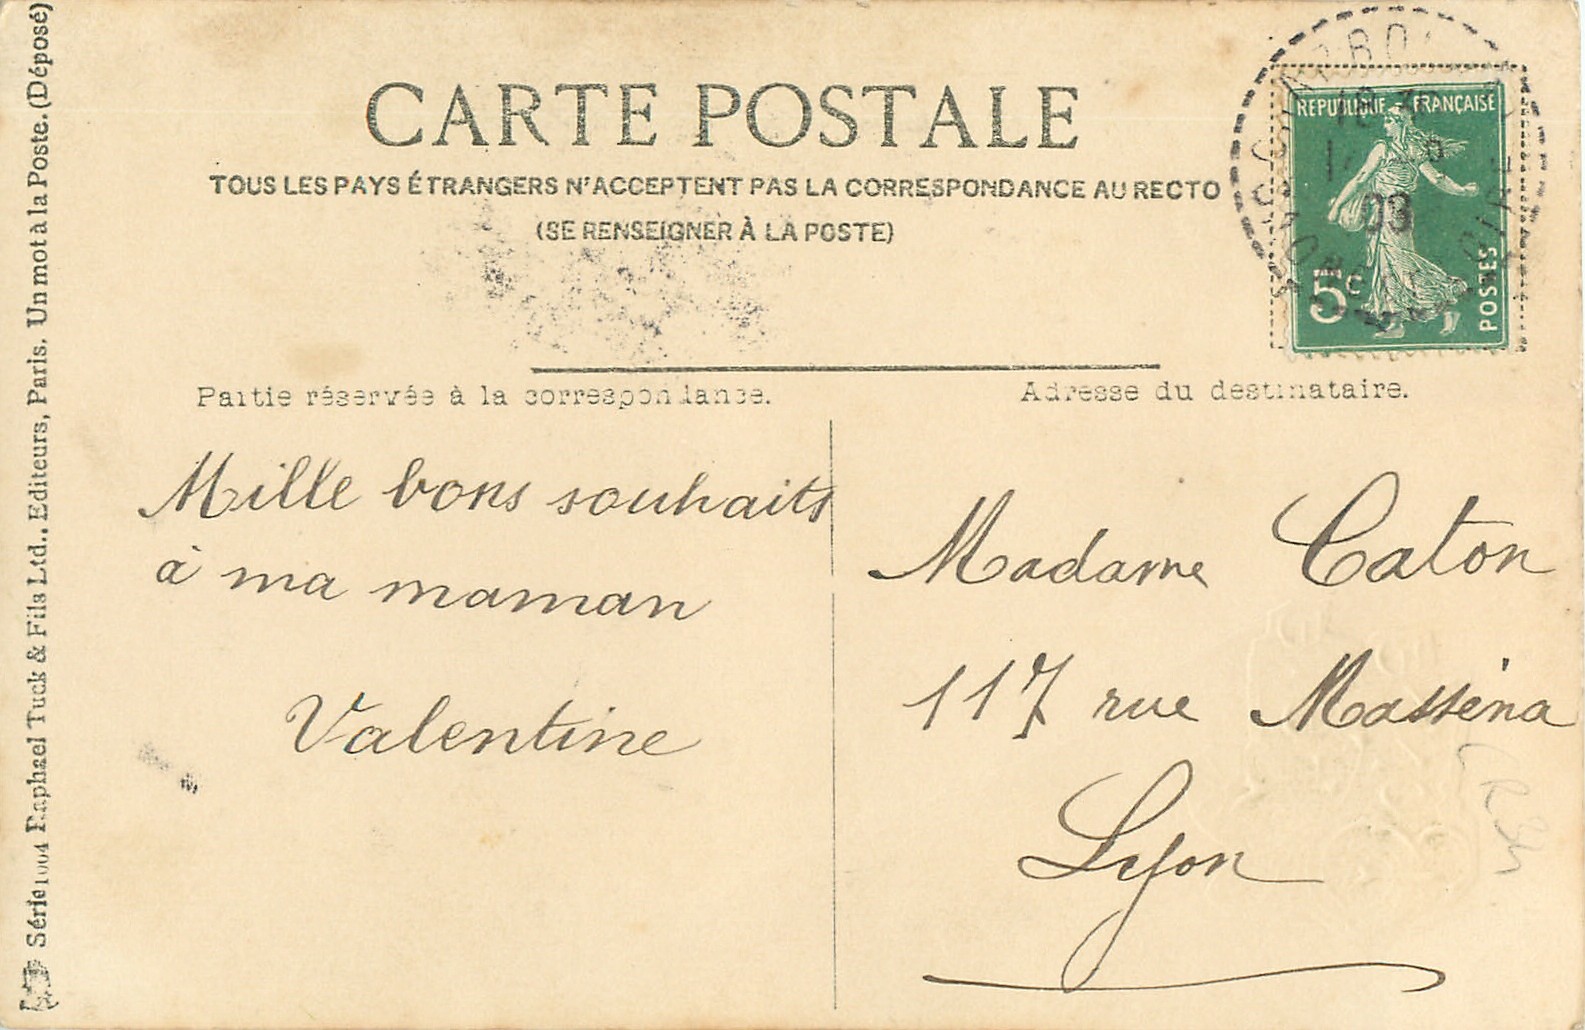 CARTE POSTALE
TOUS LES PAYS ÉTRANGERS N'ACCEPTENT PAS LA CORRESPONDANCE AU RECTO
(SE RENSEIGNER À LA POSTE)
REPUBLIQUE FRANÇAISE
5c
POSTES
03
Partie réservée à la correspondance.
Adresse du destinataire.
Mille bons souhaits
à ma maman
Valentine
Madame Caton
117 rue Masséna
Lyon
Série 1004 Raphael Tuck & Fils Ltd., Editeurs, Paris. Un mot à la Poste. (Déposé)